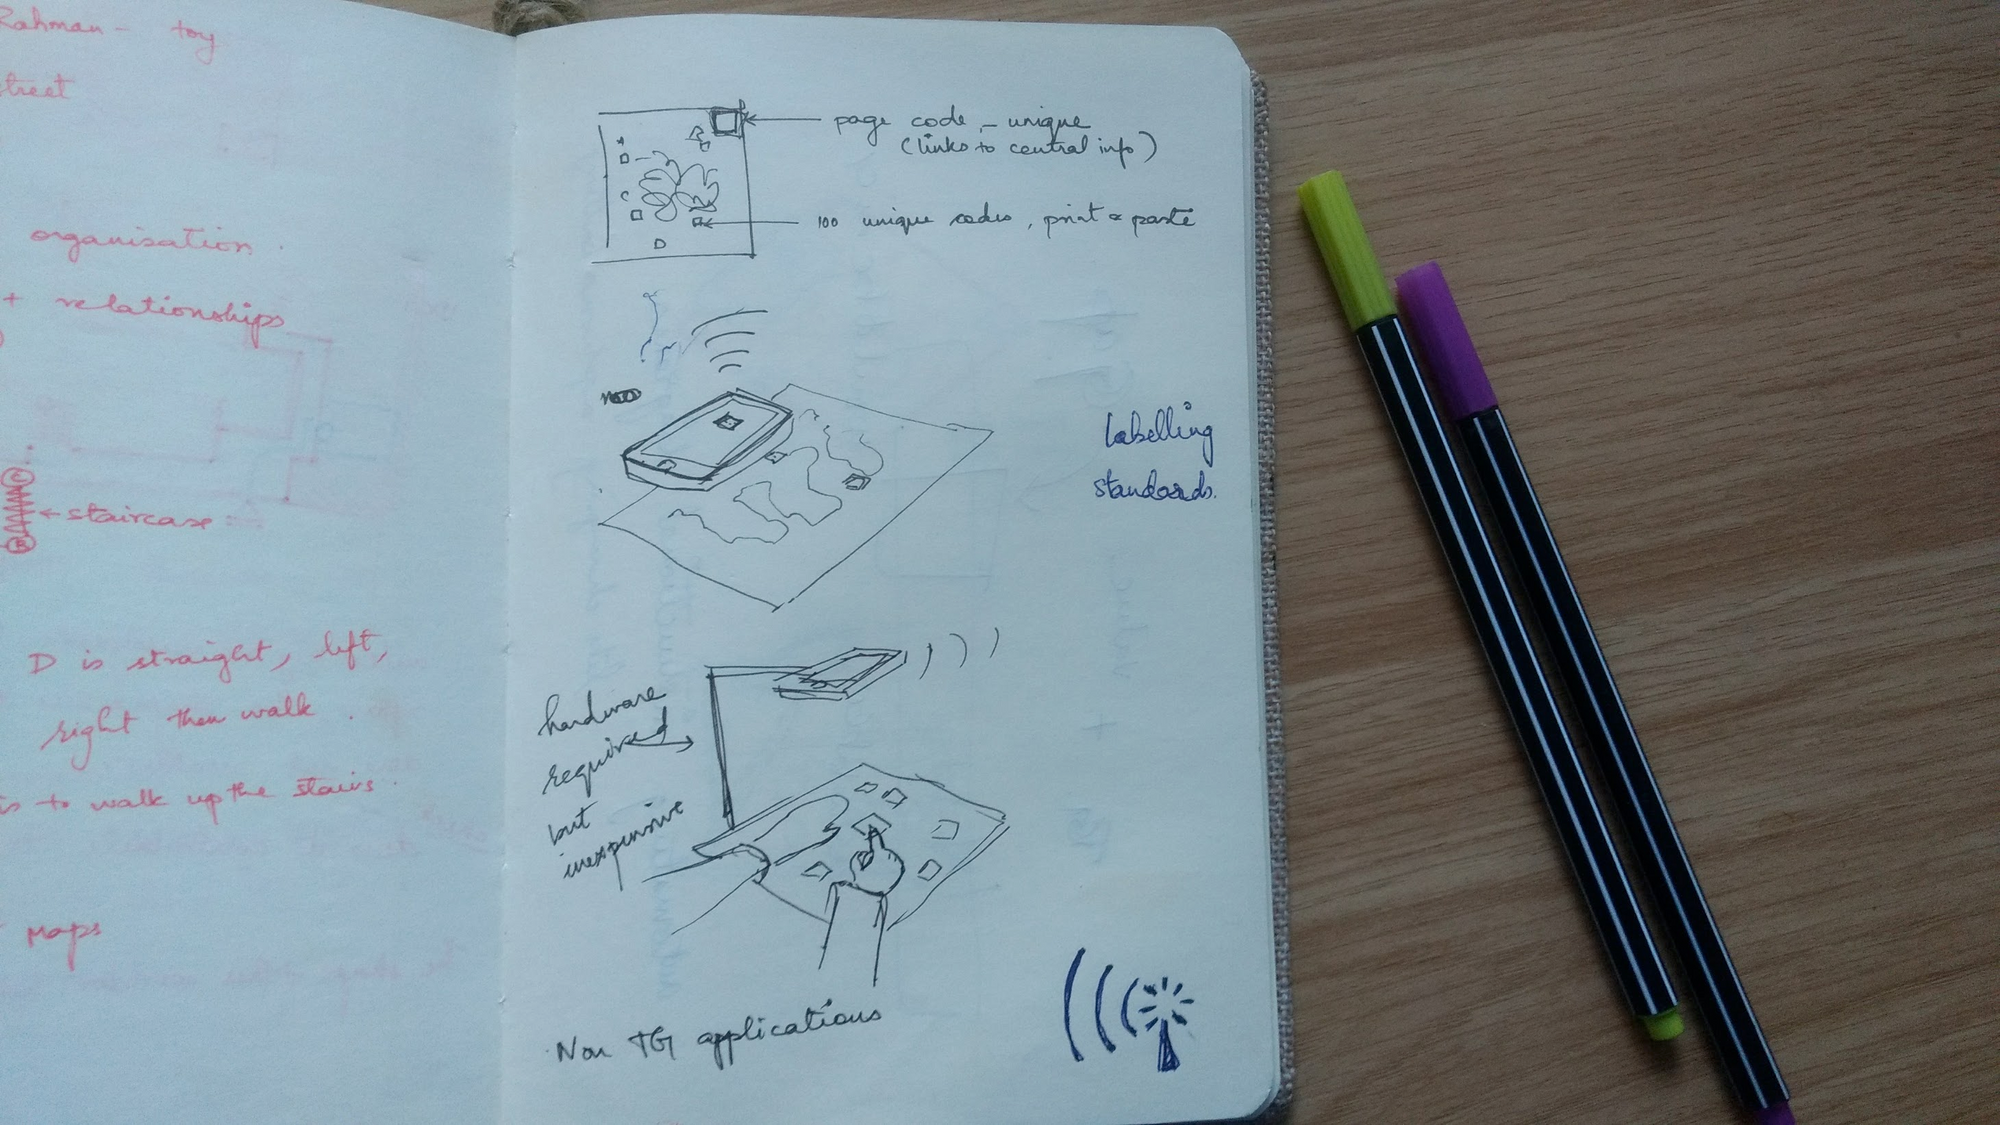 Rahman - toy
street
organisation
+ relationships
C
← staircase
B
D is straight, left,
right then walk.
is to walk up the stairs.
Maps
page code - unique
(links to central info)
100 unique codes, print & paste
Labelling
standards.
hardware
required
but
inexpensive
Non TG applications